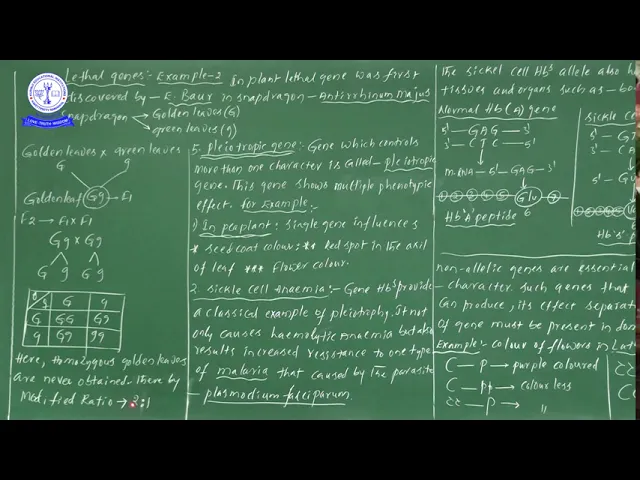 Lethal genes:- Example-2 In plant lethal gene was first
discovered by - E. Baur in snapdragon - Antirrhinum majus
Snapdragon → Golden leaves (G)
→ green leaves (g)
Golden leaves x green leaves
G g
Golden leaf Gg - F1
F2 → F1 x F1
Gg x Gg
G g G g
G g
G GG Gg
g Gg gg
Here, Homozygous golden leaves
are never obtained. There by
Modified Ratio → 2:1
5. Pleiotropic gene:- Gene which controls
more than one character is called - pleiotropic
gene. This gene shows multiple phenotypic
effect. for Example:-
1) In peaplant: Single gene influences
* seed coat colour: ** Red spot in the axil
of leaf *** Flower colour.
2. Sickle cell Anaemia:- Gene Hbˢ provide
a classical example of pleiotrophy. It not
only causes haemolytic Anaemia but also
results increased resistance to one type
of malaria that caused by the parasite
- plasmodium falciparum.
The sickel cell Hbˢ allele also h
tissues and organs such as - bo
Normal Hb (A) gene
5'- GAG - 3'
3'- CTC - 5'
mRNA - 5'- GAG - 3'
Glu
6
Hb'A' peptide
Sickle
5'-
3'-
5'-
Hb's' p
non-allelic genes are essential
- character. such genes that
can produce, its effect separat
of gene must be present in do
Example:- Colour of flowers in Lat
C - P → purple coloured
C - pp → colour less
cc - P → "